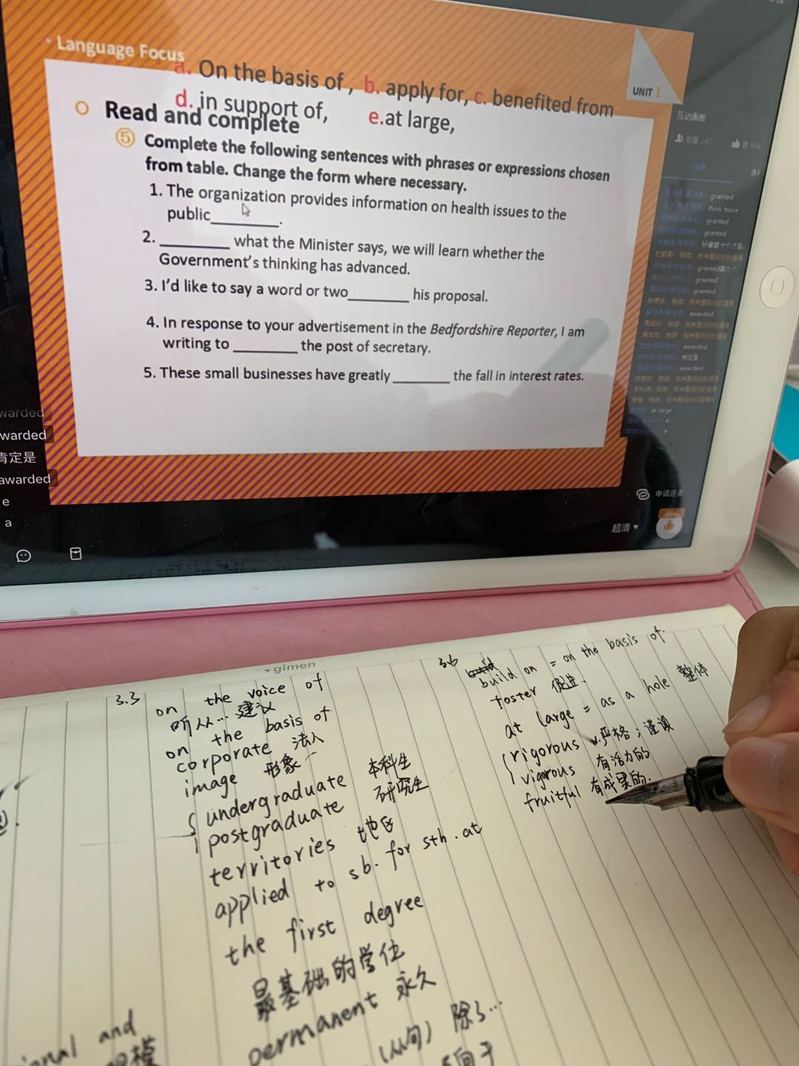 • Language Focus
a. On the basis of, b. apply for, c. benefited from
d. in support of, e.at large,
UNIT 1
Read and complete
⑤ Complete the following sentences with phrases or expressions chosen
from table. Change the form where necessary.
1. The organization provides information on health issues to the
public________.
2. ________ what the Minister says, we will learn whether the
Government's thinking has advanced.
3. I'd like to say a word or two________ his proposal.
4. In response to your advertisement in the Bedfordshire Reporter, I am
writing to ________ the post of secretary.
5. These small businesses have greatly ________ the fall in interest rates.
互动面板
granted
think twice
granted
granted
granted
granted
awarded
awarded
awarded
at large
warded
warded
肯定是
awarded
e
a
申请连麦
超清
gimen
3.3
on the voice of
听从…建议
on the basis of
corporate 法人
image 形象
undergraduate 本科生
postgraduate 研究生
territories 地区
applied to sb. for sth. at
the first degree
最基础的学位
permanent 永久
(从句) 除了…
ional and
3.6
build on = on the basis of.
foster 促进.
at large = as a hole 整体
rigorous 严格;谨慎
vigorous 有活力的
fruitful 有成果的.